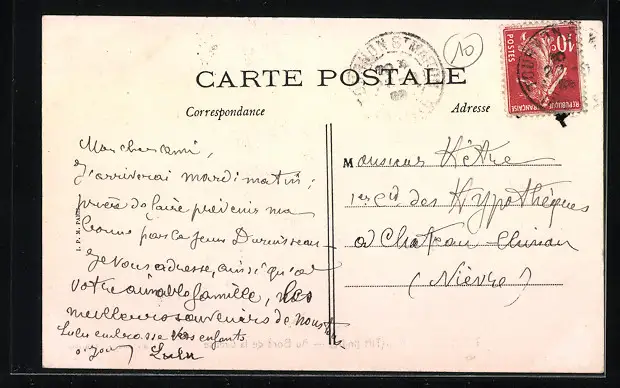 CARTE POSTALE
Correspondance
Adresse
10
POSTES
10
REPUBLIQUE FRANÇAISE
TOURNON
Mon cher ami,
J'arriverai mardi matin;
prière de faire prévenir ma
bonne par le jeune
Je vous adresse, ainsi qu'à
votre aimable famille, nos
meilleurs souvenirs de nous
Lulu embrasse vos enfants
Lulu
Monsieur
1er des Hypothèques
à Château-Chinon
(Nièvre)
Au Bord de la